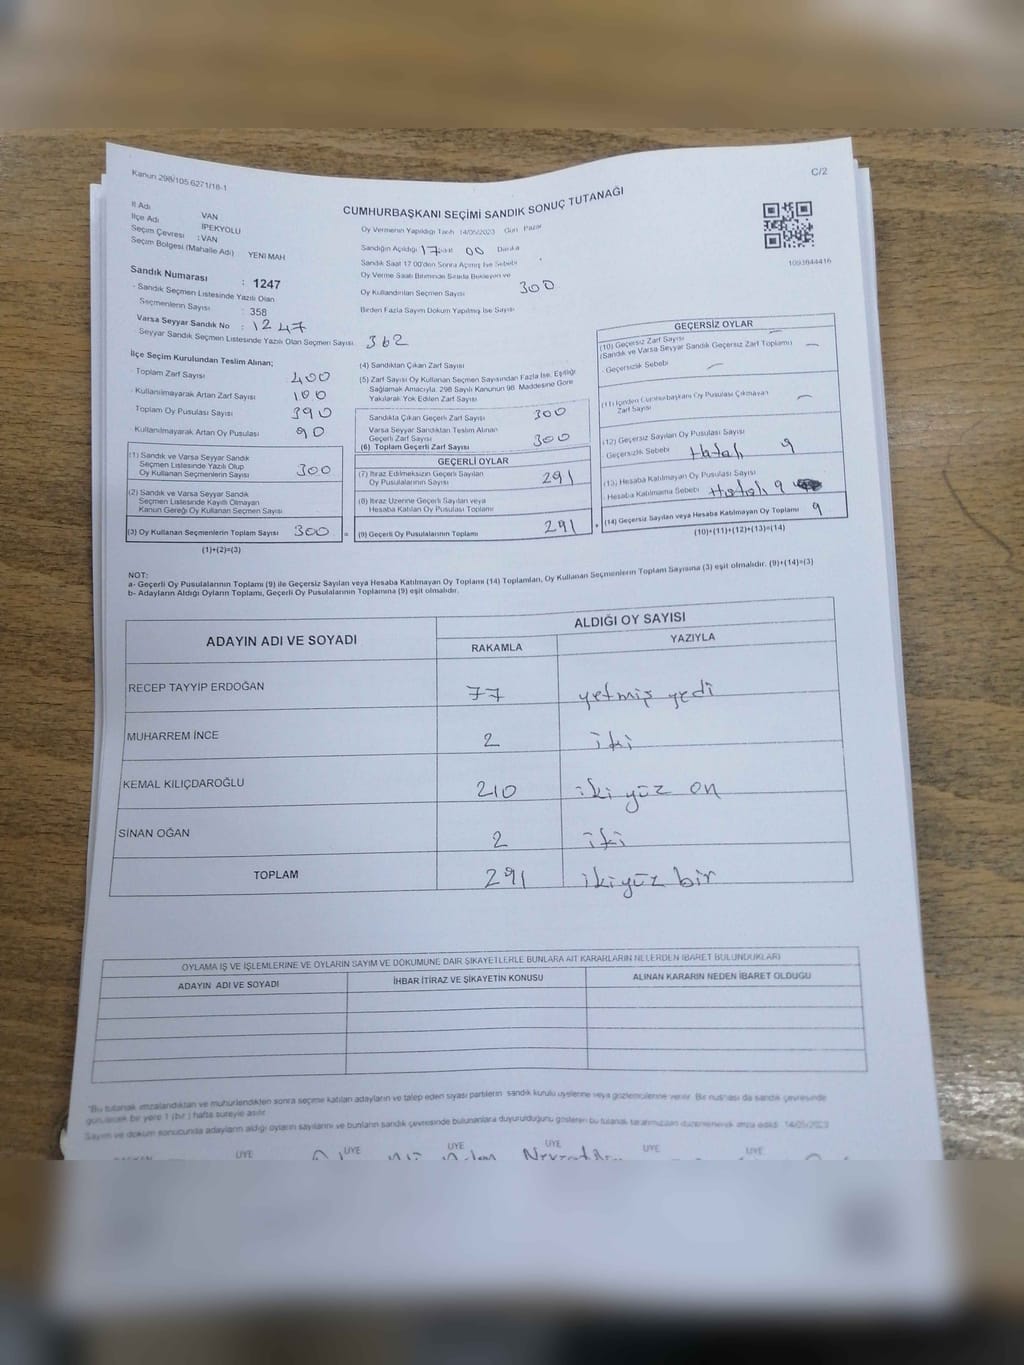 Kanun 298/105 6271/18-1
C/2
CUMHURBAŞKANI SEÇİMİ SANDIK SONUÇ TUTANAĞI
İl Adı VAN
İlçe Adı İPEKYOLU
Seçim Çevresi : VAN
Seçim Bölgesi (Mahalle Adı) YENİ MAH
Oy Vermenin Yapıldığı Tarih 14/05/2023 Gün Pazar
Sandığın Açıldığı 17 Saat 00 Dakika
Sandık Saat 17 00'den Sonra Açılmış İse Sebebi
Oy Verme Saati Bitiminde Sırada Bekleyen ve
Oy Kullandırılan Seçmen Sayısı 300
Birden Fazla Sayım Döküm Yapılmış İse Sayısı
1093844416
Sandık Numarası : 1247
Sandık Seçmen Listesinde Yazılı Olan
Seçmenlerin Sayısı : 358
Varsa Seyyar Sandık No : 1247
Seyyar Sandık Seçmen Listesinde Yazılı Olan Seçmen Sayısı 362
İlçe Seçim Kurulundan Teslim Alınan;
Toplam Zarf Sayısı 400
Kullanılmayarak Artan Zarf Sayısı 100
Toplam Oy Pusulası Sayısı 390
Kullanılmayarak Artan Oy Pusulası 90
(1) Sandık ve Varsa Seyyar Sandık
Seçmen Listesinde Yazılı Olup
Oy Kullanan Seçmenlerin Sayısı 300
(2) Sandık ve Varsa Seyyar Sandık
Seçmen Listesinde Kayıtlı Olmayan
Kanun Gereği Oy Kullanan Seçmen Sayısı
(3) Oy Kullanan Seçmenlerin Toplam Sayısı 300 =
(1)+(2)=(3)
(4) Sandıktan Çıkan Zarf Sayısı
(5) Zarf Sayısı Oy Kullanan Seçmen Sayısından Fazla İse, Eşitliği
Sağlamak Amacıyla, 298 Sayılı Kanunun 98. Maddesine Göre
Yakılarak Yok Edilen Zarf Sayısı
Sandıkta Çıkan Geçerli Zarf Sayısı 300
Varsa Seyyar Sandıktan Teslim Alınan
Geçerli Zarf Sayısı
(6) Toplam Geçerli Zarf Sayısı 300
GEÇERLİ OYLAR
(7) İtiraz Edilmeksizin Geçerli Sayılan
Oy Pusulalarının Sayısı 291
(8) İtiraz Üzerine Geçerli Sayılan veya
Hesaba Katılan Oy Pusulası Toplamı
(9) Geçerli Oy Pusulalarının Toplamı 291 +
GEÇERSİZ OYLAR
(10) Geçersiz Zarf Sayısı
(Sandık ve Varsa Seyyar Sandık Geçersiz Zarf Toplamı) —
Geçersizlik Sebebi —
(11) İçinden Cumhurbaşkanı Oy Pusulası Çıkmayan
Zarf Sayısı —
(12) Geçersiz Sayılan Oy Pusulası Sayısı
Geçersizlik Sebebi Hatalı 9
(13) Hesaba Katılmayan Oy Pusulası Sayısı
Hesaba Katılmama Sebebi Hatalı 9
(14) Geçersiz Sayılan veya Hesaba Katılmayan Oy Toplamı 9
(10)+(11)+(12)+(13)=(14)
NOT:
a- Geçerli Oy Pusulalarının Toplamı (9) ile Geçersiz Sayılan veya Hesaba Katılmayan Oy Toplamı (14) Toplamları, Oy Kullanan Seçmenlerin Toplam Sayısına (3) eşit olmalıdır. (9)+(14)=(3)
b- Adayların Aldığı Oyların Toplamı, Geçerli Oy Pusulalarının Toplamına (9) eşit olmalıdır.
ADAYIN ADI VE SOYADI ALDIĞI OY SAYISI
RAKAMLA YAZIYLA
RECEP TAYYİP ERDOĞAN 77 yetmiş yedi
MUHARREM İNCE 2 iki
KEMAL KILIÇDAROĞLU 210 iki yüz on
SİNAN OĞAN 2 iki
TOPLAM 291 ikiyüz bir
OYLAMA İŞ VE İŞLEMLERİNE VE OYLARIN SAYIM VE DÖKÜMÜNE DAİR ŞİKAYETLERLE BUNLARA AİT KARARLARIN NELERDEN İBARET BULUNDUKLARI
ADAYIN ADI VE SOYADI İHBAR İTİRAZ VE ŞİKAYETİN KONUSU ALINAN KARARIN NEDEN İBARET OLDUĞU
"Bu tutanak imzalandıktan ve mühürlendikten sonra seçime katılan adayların ve talep eden siyasi partilerin sandık kurulu üyelerine veya gözlemcilerine verilir. Bir nüshası da sandık çevresinde
görülecek bir yere 1 (bir) hafta süreyle asılır
Sayım ve döküm sonucunda adayların aldığı oyların sayılarını ve bunların sandık çevresinde bulunanlara duyurulduğunu gösteren bu tutanak tarafımızdan düzenlenerek imza edildi 14/05/2023
ÜYE ÜYE ÜYE ÜYE ÜYE ÜYE